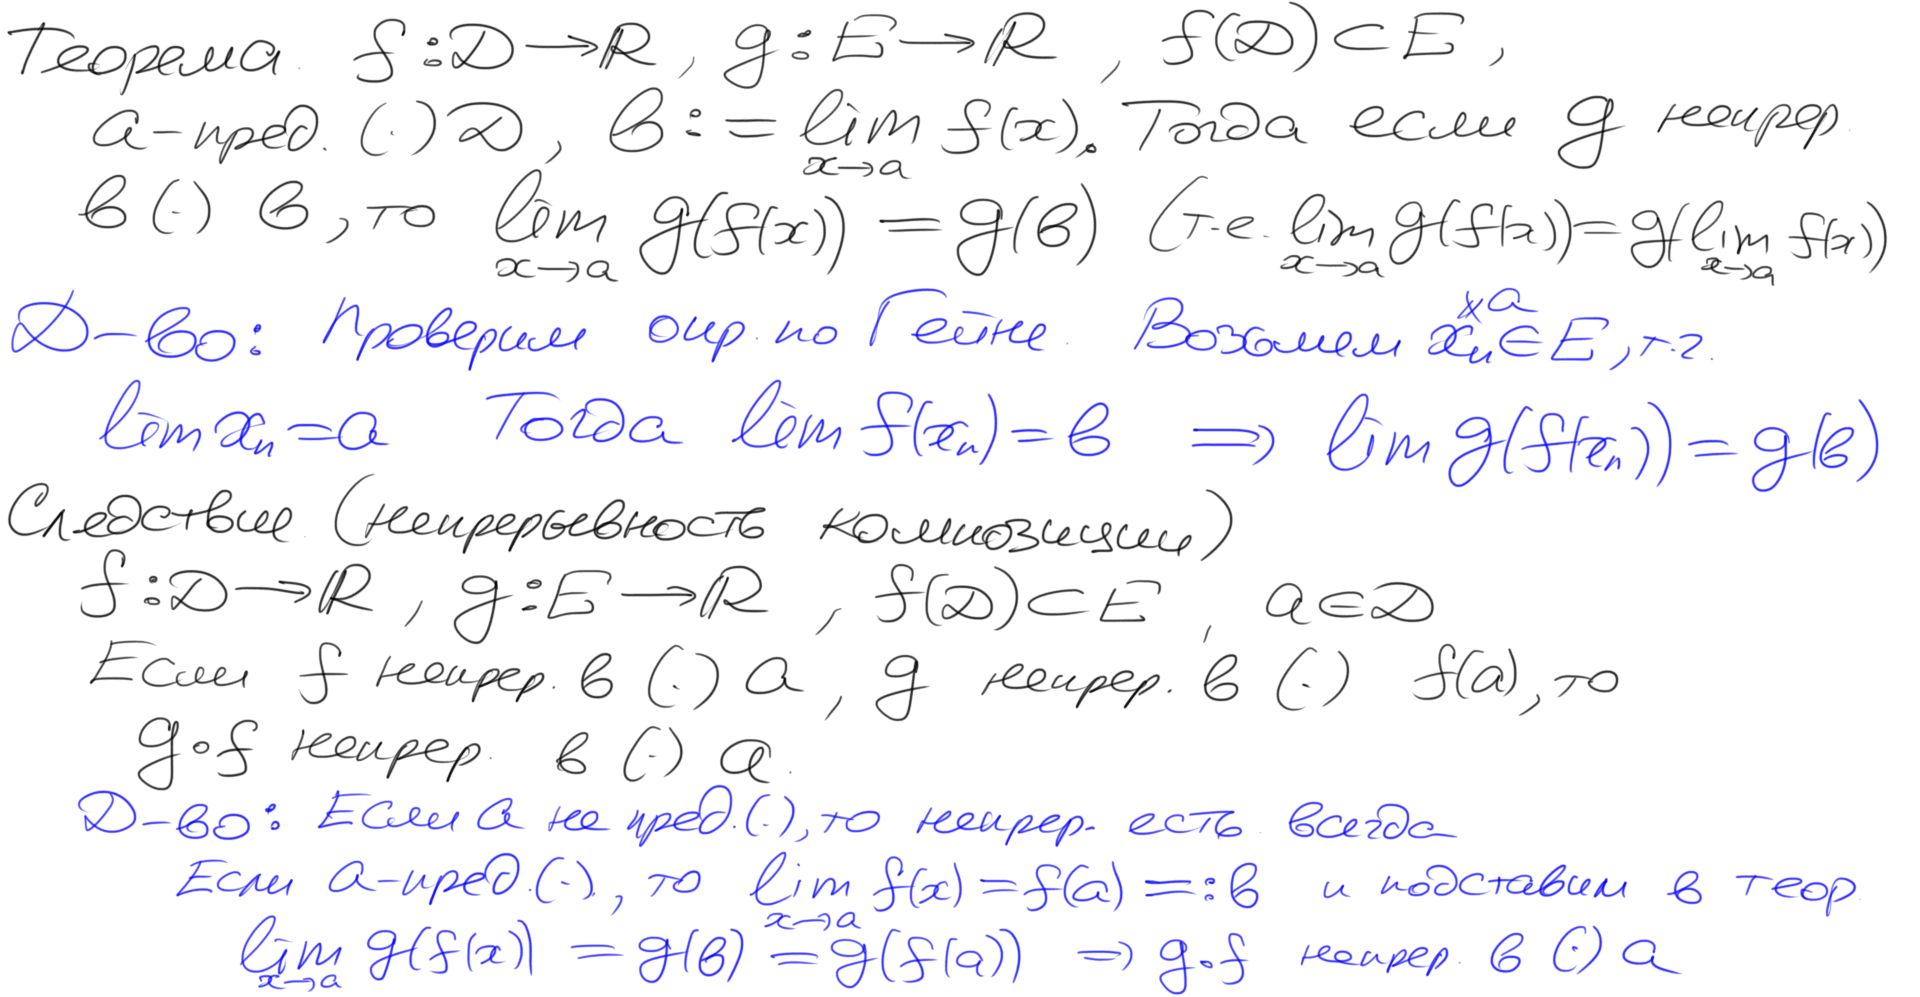 Теорема. f : D → ℝ, g : E → ℝ, f(D) ⊂ E,
a - пред. (·) D, b := lim_{x→a} f(x). Тогда если g непрер.
в (·) b, то lim_{x→a} g(f(x)) = g(b) (т.е. lim_{x→a} g(f(x)) = g(lim_{x→a} f(x))
Д-во: Проверим опр. по Гейне. Возьмем x_n ∈ E, т.ч.
≠ a
lim x_n = a Тогда lim f(x_n) = b ⇒ lim g(f(x_n)) = g(b)
Следствие (непрерывность композиции)
f : D → ℝ, g : E → ℝ, f(D) ⊂ E, a ∈ D
Если f непрер. в (·) a, g непрер. в (·) f(a), то
g∘f непрер. в (·) a.
Д-во: Если a не пред. (·), то непрер. есть всегда
Если a - пред. (·), то lim_{x→a} f(x) = f(a) =: b и подставим в теор.
lim_{x→a} g(f(x)) = g(b) = g(f(a)) ⇒ g∘f непрер. в (·) a